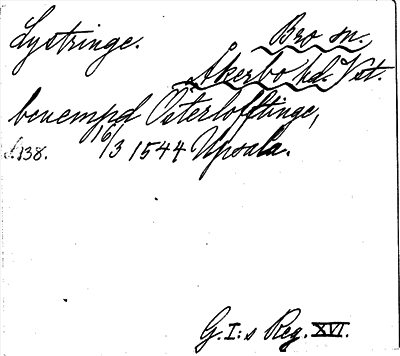 Lystringe.
Bro sn.
Åkerbo hd. Vst.
benempd Österlofftinge,
s. 138. 16/3 1544 Upsala.
G. I:s Reg. XVI.